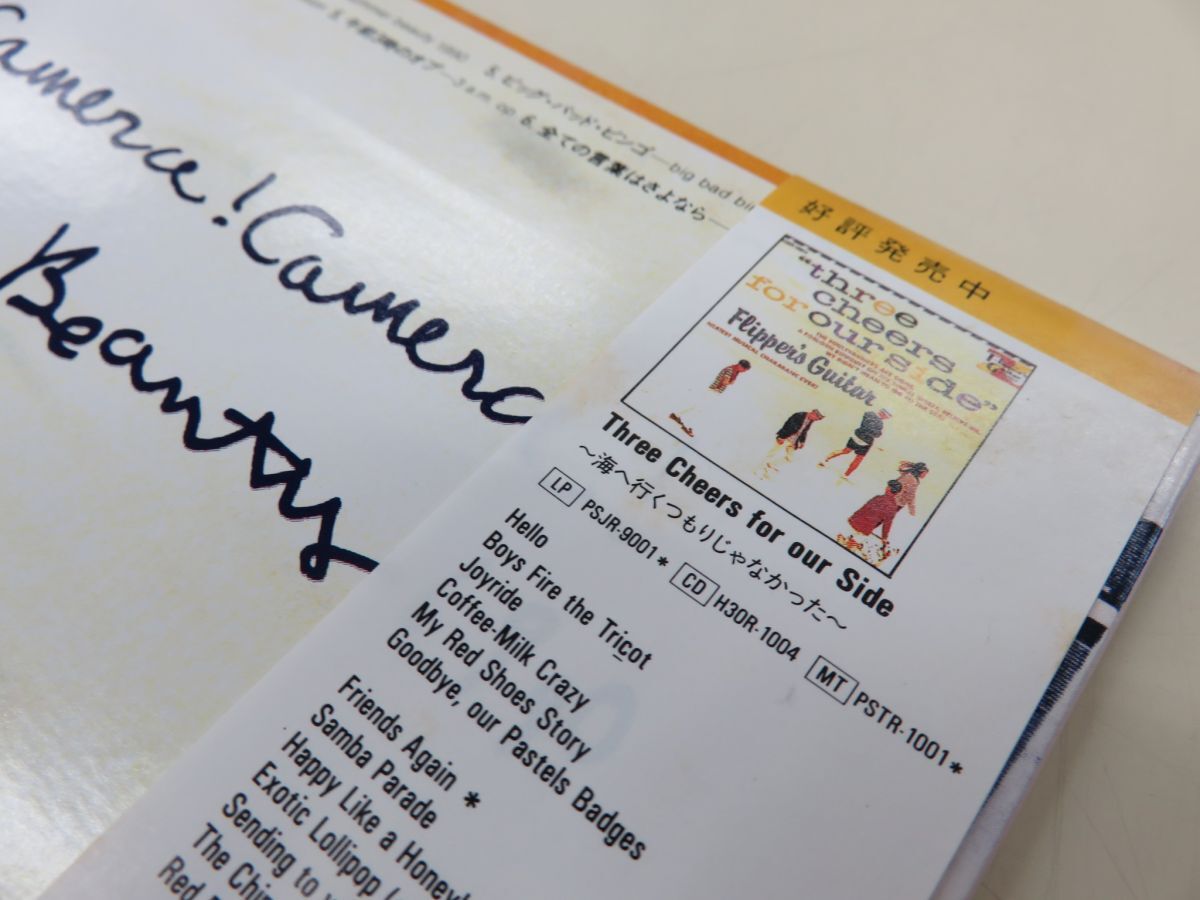 5. ビッグ・バッド・ビンゴ—big bad bi
6. 全ての言葉はさよなら—
Camera! Camera
Beauty
好評発売中
"three
cheers
for our side"
Flipper's Guitar
Three Cheers for our Side
〜海へ行くつもりじゃなかった〜
LP PSJR-9001* CD H30R-1004 MT PSTR-1001*
Hello
Boys Fire the Tricot
Joyride
Coffee-Milk Crazy
My Red Shoes Story
Goodbye, our Pastels Badges
Friends Again *
Samba Parade
Happy Like a Honey
Exotic Lollipop
Sending to
The Chi
Red